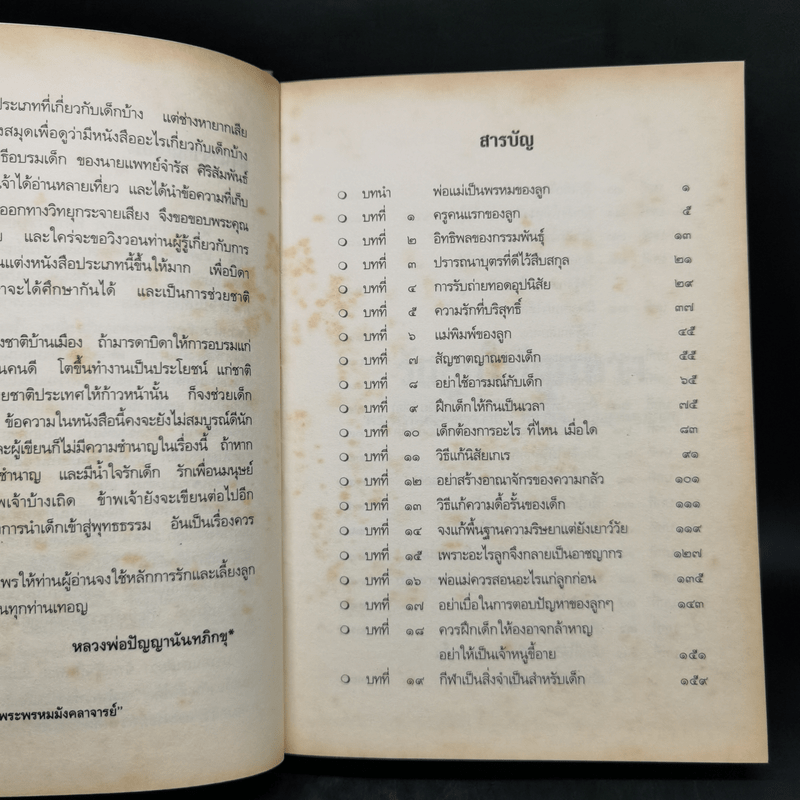 ประเภทที่เกี่ยวกับเด็กบ้าง แต่ช่างหายากเสีย
งสมุดเพื่อดูว่ามีหนังสืออะไรเกี่ยวกับเด็กบ้าง
ธีอบรมเด็ก ของนายแพทย์จำรัส ศิริสัมพันธ์
เจ้าได้อ่านหลายเที่ยว และได้นำข้อความที่เก็บ
ออกทางวิทยุกระจายเสียง จึงขอขอบพระคุณ
และใคร่จะขอวิงวอนท่านผู้รู้เกี่ยวกับการ
นแต่งหนังสือประเภทนี้ขึ้นให้มาก เพื่อบิดา
าจะได้ศึกษากันได้ และเป็นการช่วยชาติ
งชาติบ้านเมือง ถ้ามารดาบิดาให้การอบรมแก่
นคนดี โตขึ้นทำงานเป็นประโยชน์ แก่ชาติ
ยชาติประเทศให้ก้าวหน้านั้น ก็จงช่วยเด็ก
ข้อความในหนังสือนี้คงจะยังไม่สมบูรณ์ดีนัก
ละผู้เขียนก็ไม่มีความชำนาญในเรื่องนี้ ถ้าหาก
ชำนาญ และมีน้ำใจรักเด็ก รักเพื่อนมนุษย์
พเจ้าบ้างเถิด ข้าพเจ้ายังจะเขียนต่อไปอีก
การนำเด็กเข้าสู่พุทธธรรม อันเป็นเรื่องควร
พรให้ท่านผู้อ่านจงใช้หลักการรักและเลี้ยงลูก
นทุกท่านเทอญ
หลวงพ่อปัญญานันทภิกขุ*
พระพรหมมังคลาจารย์"
สารบัญ
บทนำ พ่อแม่เป็นพรหมของลูก ๑
บทที่ ๑ ครูคนแรกของลูก ๕
บทที่ ๒ อิทธิพลของกรรมพันธุ์ ๑๓
บทที่ ๓ ปรารถนาบุตรที่ดีไว้สืบสกุล ๒๑
บทที่ ๔ การรับถ่ายทอดอุปนิสัย ๒๙
บทที่ ๕ ความรักที่บริสุทธิ์ ๓๗
บทที่ ๖ แม่พิมพ์ของลูก ๔๕
บทที่ ๗ สัญชาตญาณของเด็ก ๕๕
บทที่ ๘ อย่าใช้อารมณ์กับเด็ก ๖๕
บทที่ ๙ ฝึกเด็กให้กินเป็นเวลา ๗๕
บทที่ ๑๐ เด็กต้องการอะไร ที่ไหน เมื่อใด ๘๓
บทที่ ๑๑ วิธีแก้นิสัยเกเร ๙๑
บทที่ ๑๒ อย่าสร้างอาณาจักรของความกลัว ๑๐๑
บทที่ ๑๓ วิธีแก้ความดื้อรั้นของเด็ก ๑๑๑
บทที่ ๑๔ จงแก้พื้นฐานความริษยาแต่ยังเยาว์วัย ๑๑๙
บทที่ ๑๕ เพราะอะไรลูกจึงกลายเป็นอาชญากร ๑๒๗
บทที่ ๑๖ พ่อแม่ควรสอนอะไรแก่ลูกก่อน ๑๓๕
บทที่ ๑๗ อย่าเบื่อในการตอบปัญหาของลูกๆ ๑๔๓
บทที่ ๑๘ ควรฝึกเด็กให้องอาจกล้าหาญ
อย่าให้เป็นเจ้าหนูขี้อาย ๑๕๑
บทที่ ๑๙ กีฬาเป็นสิ่งจำเป็นสำหรับเด็ก ๑๕๙